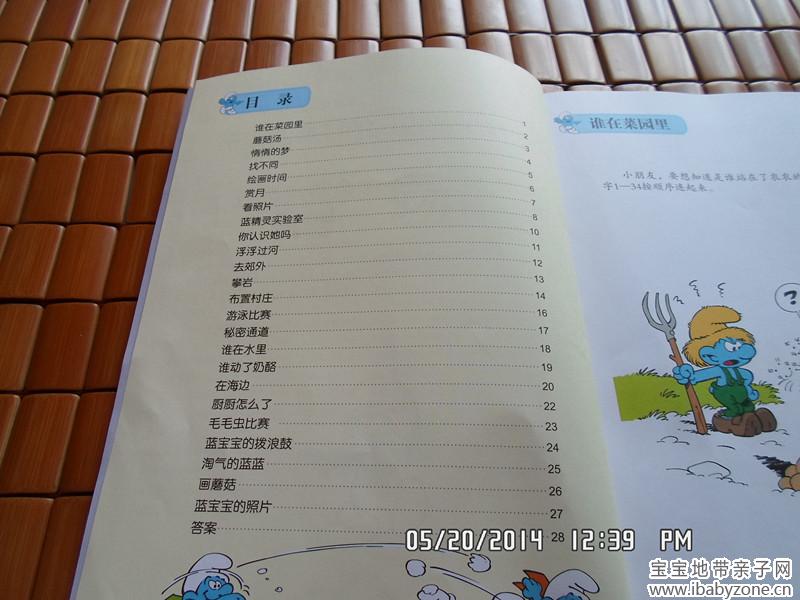 目 录
谁在菜园里 1
蘑菇汤 2
惰惰的梦 3
找不同 4
绘画时间 5
赏月 6
看照片 7
蓝精灵实验室 8
你认识她吗 10
浮浮过河 11
去郊外 12
攀岩 13
布置村庄 14
游泳比赛 16
秘密通道 17
谁在水里 18
谁动了奶酪 19
在海边 20
厨厨怎么了 22
毛毛虫比赛 23
蓝宝宝的拨浪鼓 24
淘气的蓝蓝 25
画蘑菇 26
蓝宝宝的照片 27
答案 28
谁在菜园里
小朋友，要想知道是谁站在了农农的
字1—34按顺序连起来。
?
05/20/2014 12:39 PM
宝宝地带亲子网
www.ibabyzone.cn